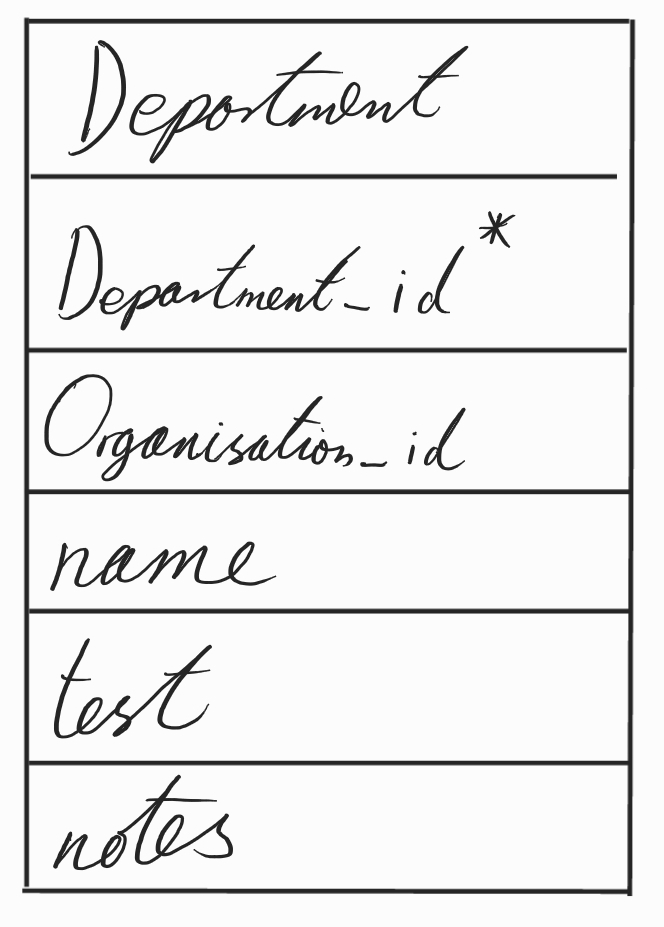 Department
Department_id*
Organisation_id
name
test
notes